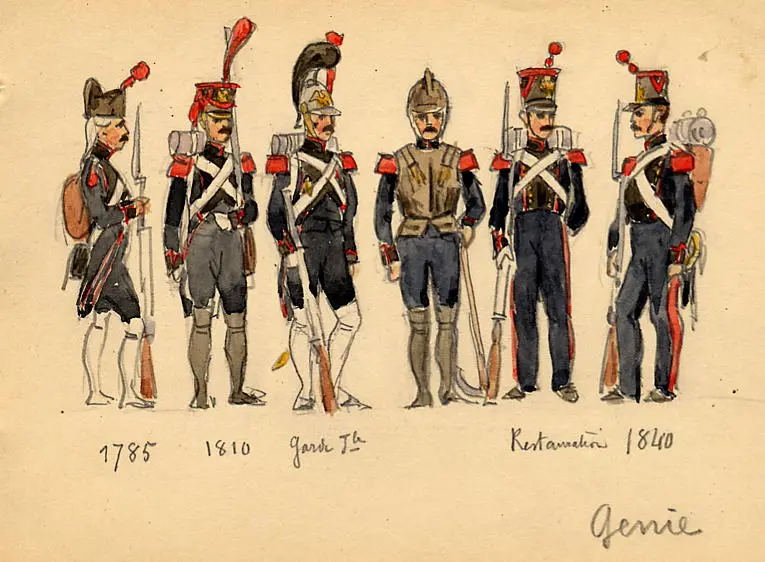 1785 1810 Garde Jle Restauration 1840
Genie